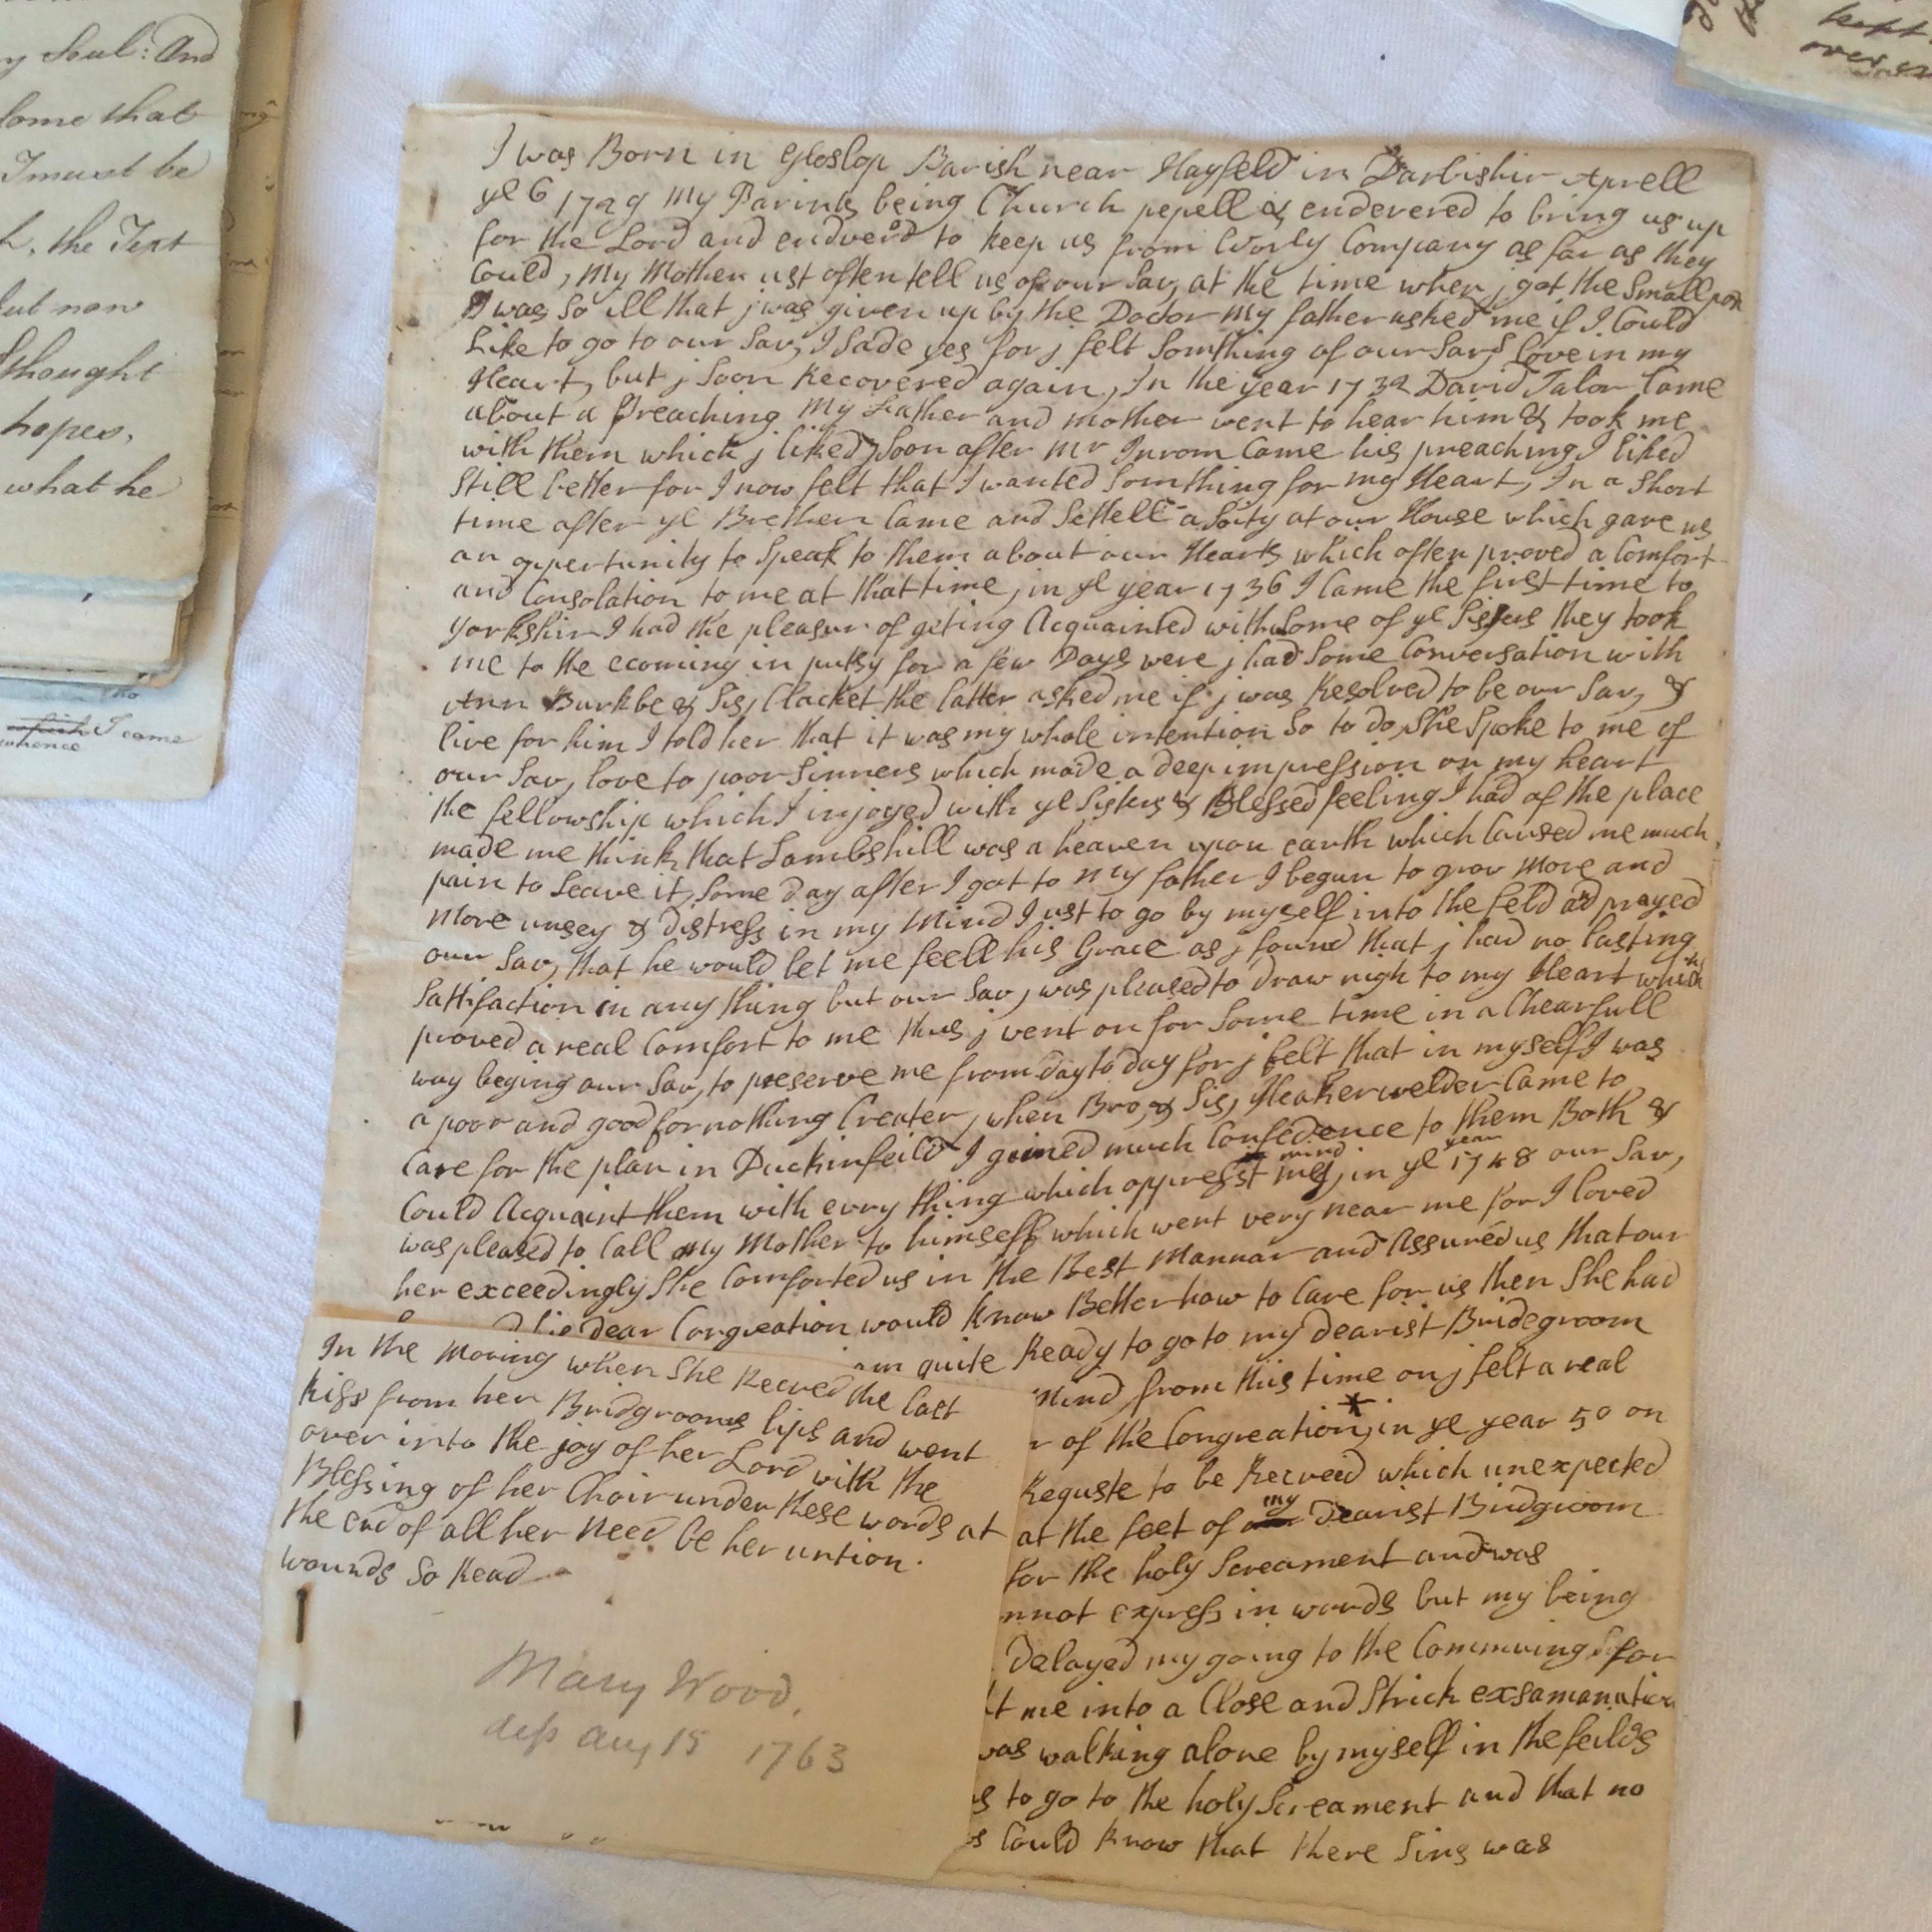 y Soul: And
come that
I must be
h, the Text
but now
thought
hopes,
what he
which I came
whence
kept
over
I was Born in Gloslop Parish near Hayfeld in Darbishir Aprell
ye 6 1729 My Parints being Church pepell & endevered to bring us up
for the Lord and endverd to keep us from Worly Company as far as they
Could, My Mother ust often tell us of our Sav, at the time when j got the Small pox
I was So ill that j was given up by the Docdor my father asked me if I Could
Like to go to our Sav, I Sade yes for j felt Somthing of our Savs Love in my
Heart, but j Soon Recovered again, In the year 1732 David Talor Came
about a Preaching My Father and mother went to hear him & took me
with them which j liked, Soon after Mr Inrom Came his preaching I liked
Still better for I now felt that I wanted Somthing for my Heart, In a Short
time after ye Brethern Came and Settell a Soity at our House which gave us
an oppertunity to Speak to them about our Hearts which often proved a Comfort
and Consolation to me at that time, in ye year 1736 I Came the first time to
yorkshir I had the pleasur of geting Acquainted with Some of ye Sisters they took
me to the ecoming in putsy for a few Days were j had Some Conversation with
Ann Burkbe & Sis, Clacket the latter asked me if j was Resolved to be our Sav, &
live for him I told her that it was my whole intention So to do, She Spoke to me of
our Sav, love to poor Sinners which made a deep impression on my heart
the fellowship which I injoyed with ye Sisters & Blessed feeling I had of the place
made me think that Lambshill was a heaven upon earth which Caused me much
pain to Leave it, Some Day after I got to My father I begun to grow More and
More unsey & distress in my Mind I ust to go by myself into the feld and prayed
our Sav, that he would let me feell his Grace as j found that j had no lasting
Sattifaction in any thing but our Sav, was pleased to draw nigh to my Heart which
proved a real Comfort to me thus j went on for Some time in a Chearfull
way beging our Sav, to preserve me from day to day for j felt that in myself I was
a poor and good for nothing Creater, when Bro, & Sis, Heakerwelder Came to
Care for the plan in Duckinfeild I gained much Confedence to them Both &
Could Acquaint them with evry thing which opprest my mind, in ye year 1748 our Sav,
was pleased to Call my Mother to himself which went very near me for I loved
her exceedingly She Comforted us in the Best Mannar and Assured us that our
dear Congreation would know Better how to Care for us then She had
am quite Ready to go to my dearist Bridegroom
mind, from this time on j felt a real
of the Congreation, in ye year 50 on
Reguste to be Recved which unexpected
at the feet of my Dearist Bridgroom
for the holy Screament and was
nnot express in words but my being
Delayed my going to the Communing for
t me into a Close and Strick exsamanation
was walking alone by myself in the feilds
to go to the holy Screament and that no
Could know that there Sins was
In the Moring when She Recved the last
kiss from her Bridgrooms lips and went
over into the joy of her Lord with the
Blessing of her Choir under these words at
the end of all her need be her untion.
wounds So Read
Mary Wood,
dep Aug 15 1763